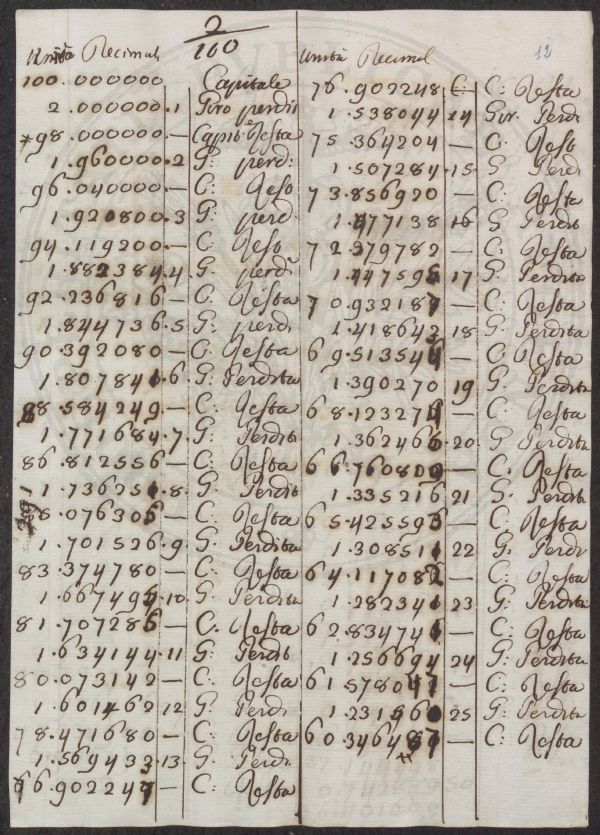 2
100
Unità Decimal
100.000000 Capitale
2.000000.1 Giro perdi
98.000000.— Capit.e Resta
1.960000.2 G: perd:
96.040000.— C: Res
1.920800.3 G: perd
94.119200.— C Res
1.882384.4 G. perdi
92.236816 — C: Resta
1.844736.5 G: perdi
90.392080 — C. Resta
1.807841.6 G: Perdita
88.584249 — C: Resta
1.771684.7 G: Perdit
86.812556 — C: Resta
1.736251.8. G. Perdit
8 .076305 — C: Resta
1.701526.9. G: Perdita
83.374780 — C: Resta
1.667495.10 G: Perdita
81.707286 — C. Resta
1.634144.11 G: Perdit
80.073142 — C: Resta
1.601462 12 G: Perdi
78.471680 — C: Resta
1.569433.13. G: Perdi
76.902247 — C: Resta
12
Unità Decimal
76.902248 C: Resta
1.538044 14 Gir. Perdi
75.364204 — C. Rest
1.507284.15. G Perdi
73.856920 — C: Resta
1.477138 16 G Perdit
72.379782 — C: Resta
1.447595 17 G: Perdita
70.932187 — C: Resta
1.418643 18 G: Perdita
69.513544 — C: Resta
1.390270 19 G: Perdita
68.123274 — C: Resta
1.362466.20. G Perdita
66.760809 — C. Resta
1.335216 21 G. Perdita
65.425593 — C: Resta
1.308511 22 G. Perdi
64.117082 — C: Resta
1.282341 23 G: Perdita
62.834741 — C: Resta
1.256694 24 G: Perdita
61.578047 — C: Resta
1.231560 25 G: Perdita
60.346487 — C: Resta